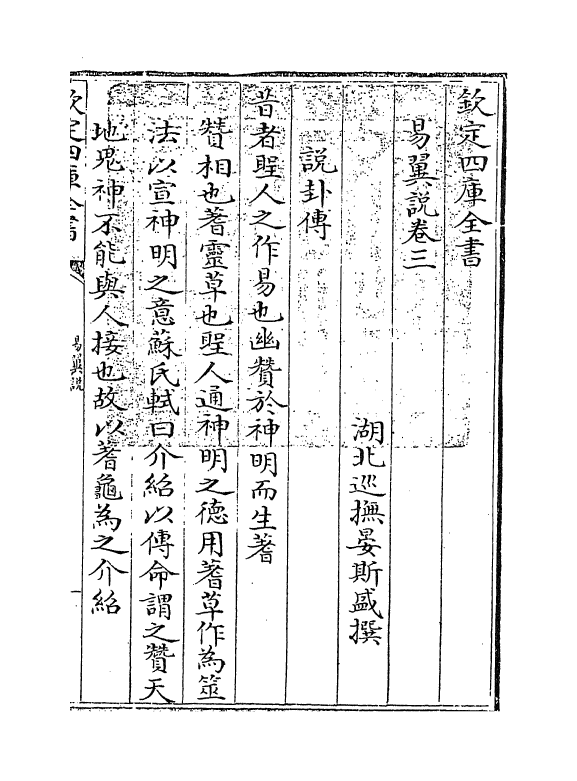 欽定四庫全書
易翼說卷三
湖北巡撫晏斯盛撰
說卦傳
昔者聖人之作易也幽贊於神明而生蓍
贊相也蓍靈草也聖人通神明之德用蓍草作為筮
法以宣神明之意蘇氏軾曰介紹以傳命謂之贊天
地鬼神不能與人接也故以蓍龜為之介紹
欽定四庫全書
易翼說
一